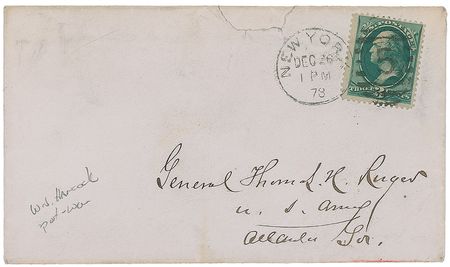 U.S. POSTAGE
NEW YORK
DEC 26
1 PM
78
THREE CENTS
General Thomas H. Ruger
U. S. Army
Atlanta
W.S. Hancock
post-war